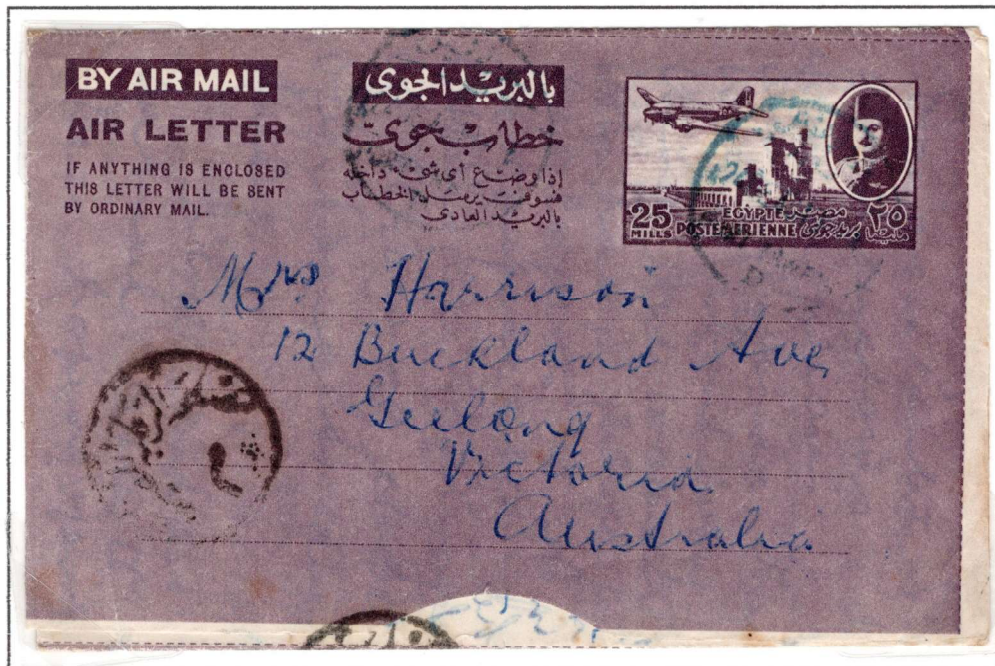 BY AIR MAIL
AIR LETTER
IF ANYTHING IS ENCLOSED
THIS LETTER WILL BE SENT
BY ORDINARY MAIL.
بالبريد الجوى
خطاب جوى
إذا وضع أى شئ داخله
فسوف يرسل الخطاب
بالبريد العادى
25 MILLS
EGYPTE مصر
POSTE AERIENNE بريد جوى
٢٥ مليما
Mrs Harrison
12 Buckland Ave
Geelong
Victoria
Australia